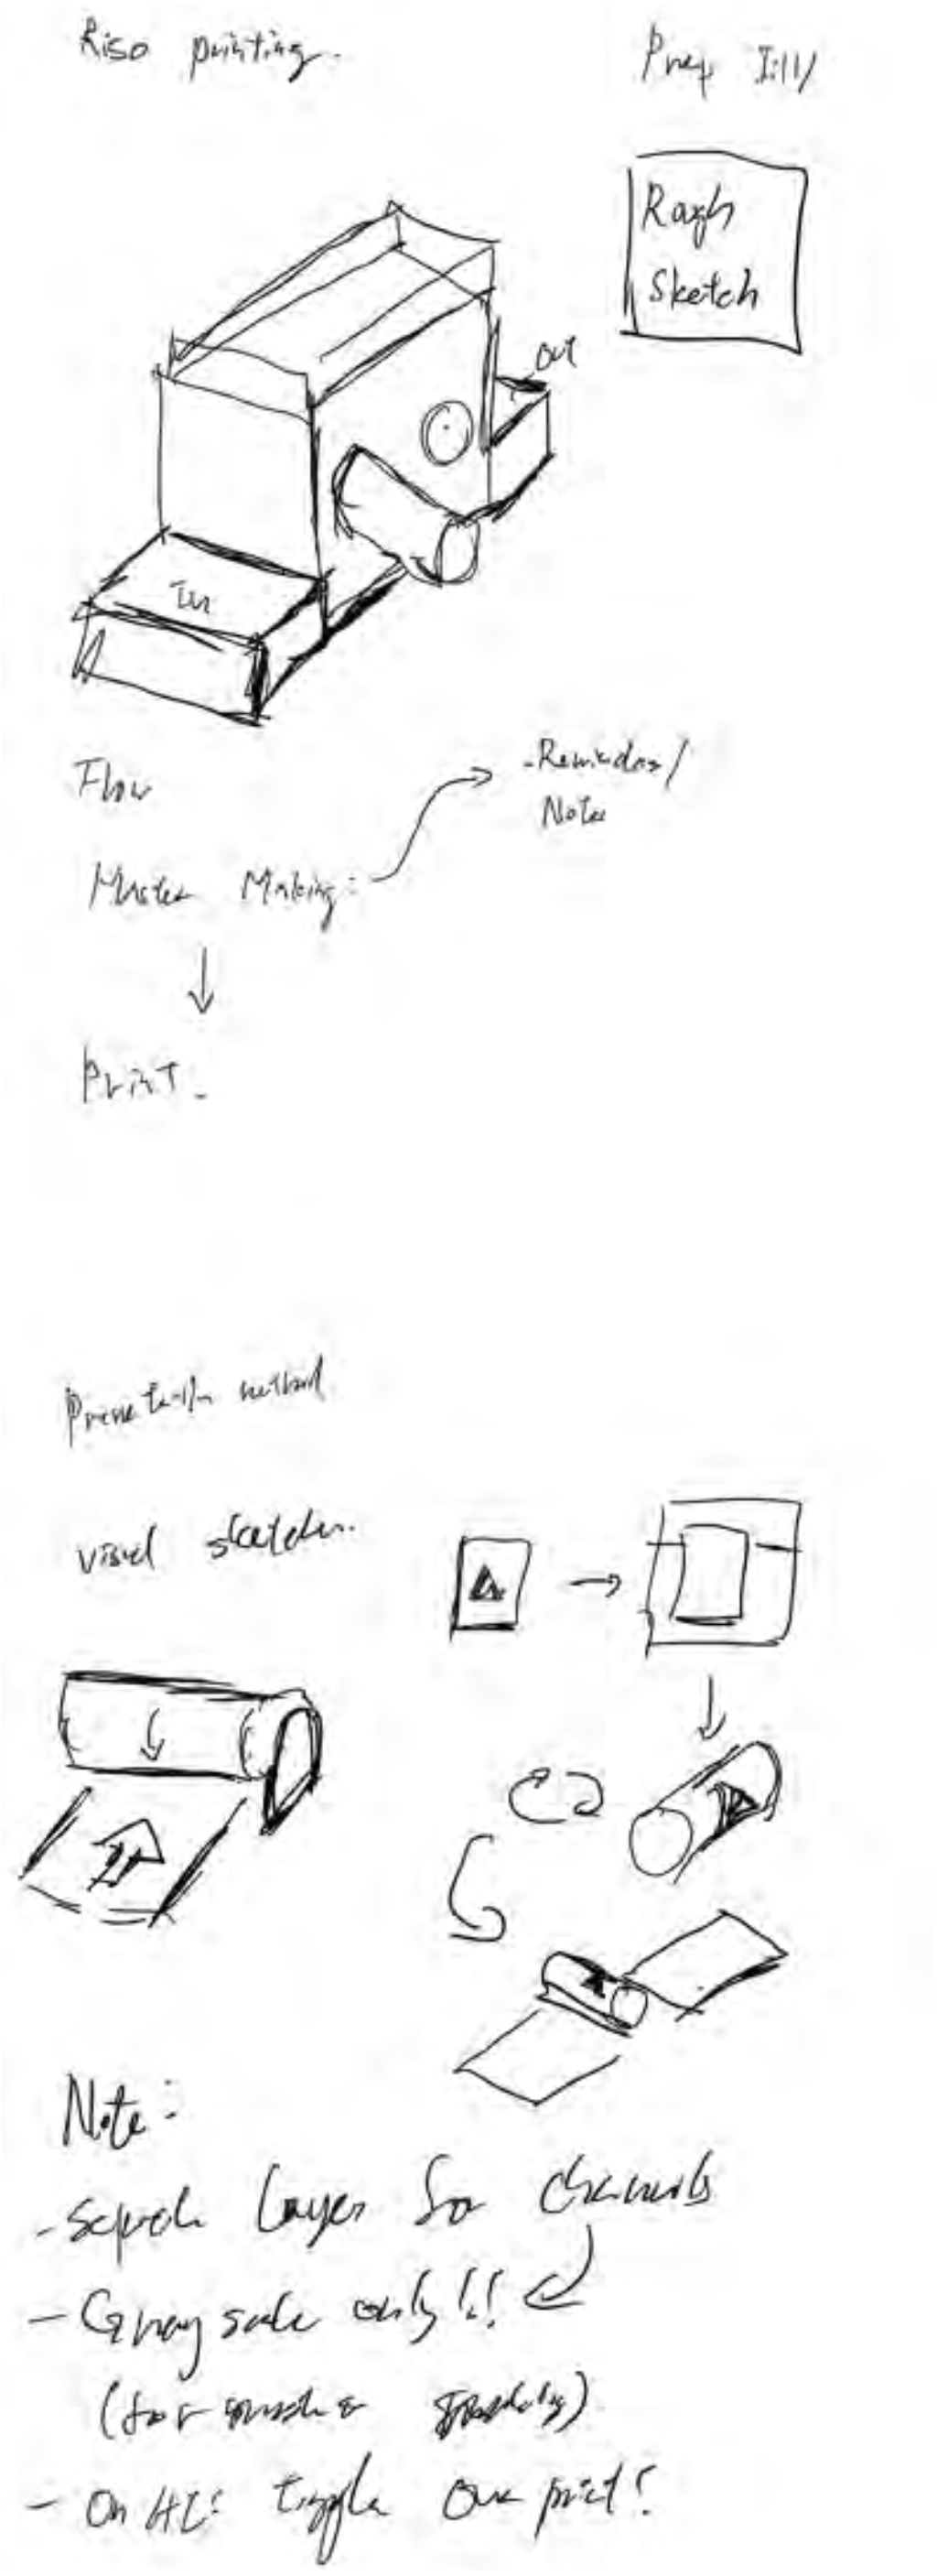 Riso printing.
Prep Ill/
Rough
Sketch
Out
In
Flow
- Reminders/
Note
Master Making:
Print.
Presentation method
visual sketches.
Note:
- Separate Layer for channels
- Grayscale only!!
(for
- On AI: toggle Overprint!